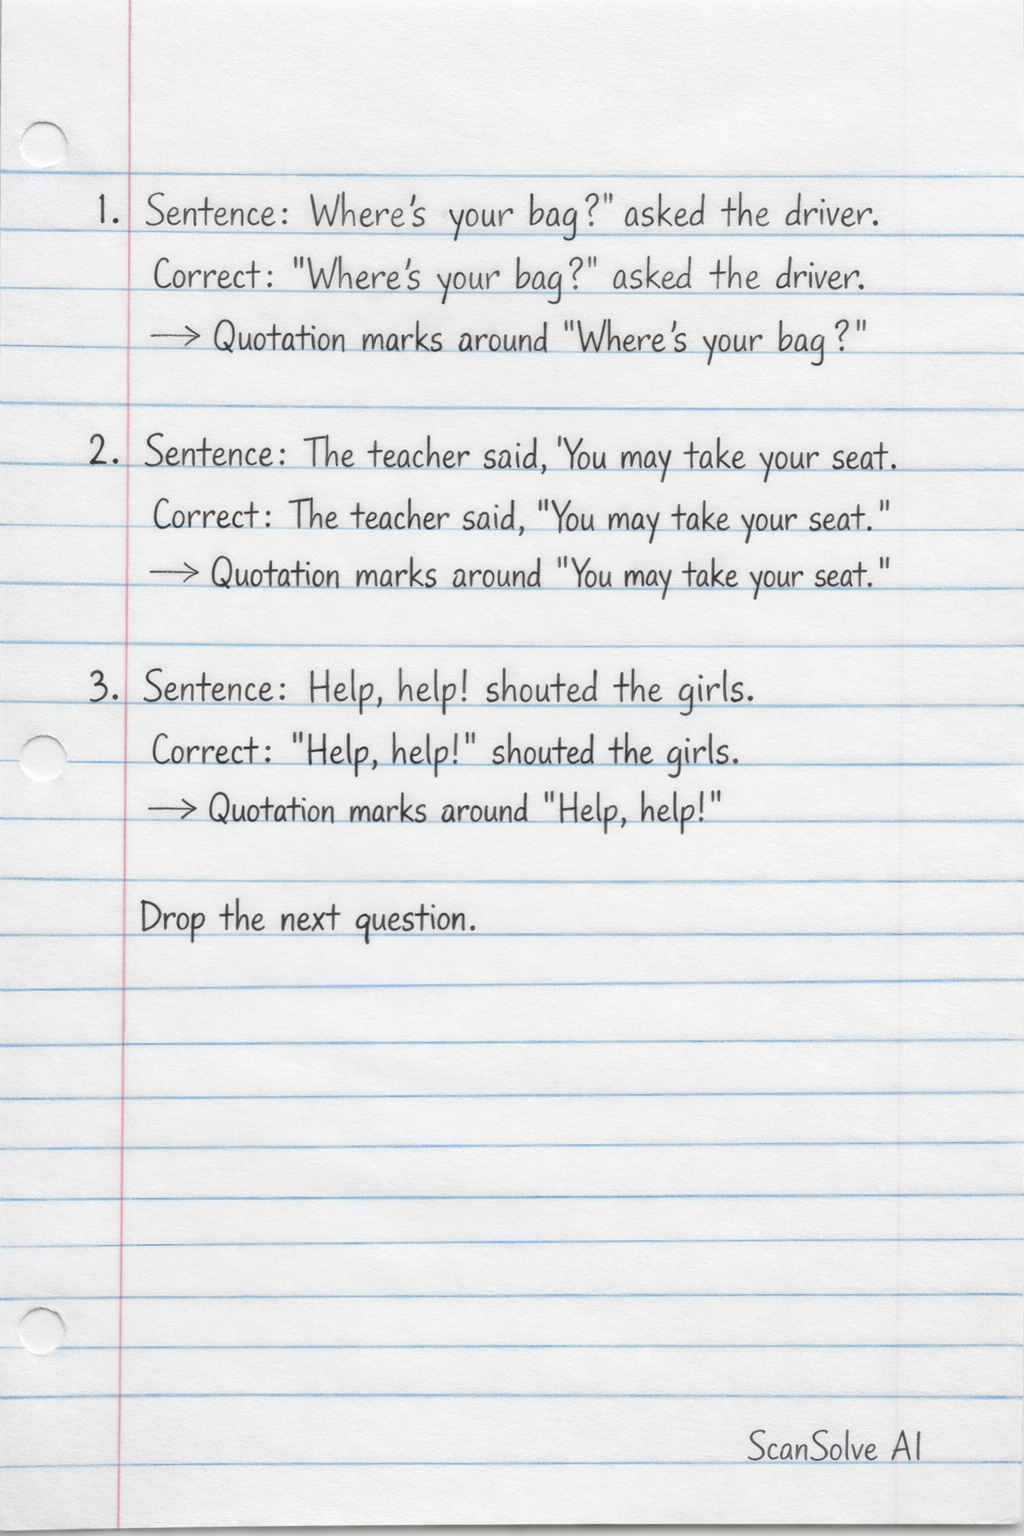 1. Sentence: Where's your bag?" asked the driver.
Correct: "Where's your bag?" asked the driver.
→ Quotation marks around "Where's your bag?"
2. Sentence: The teacher said, 'You may take your seat.
Correct: The teacher said, "You may take your seat."
→ Quotation marks around "You may take your seat."
3. Sentence: Help, help! shouted the girls.
Correct: "Help, help!" shouted the girls.
→ Quotation marks around "Help, help!"
Drop the next question.
ScanSolve AI